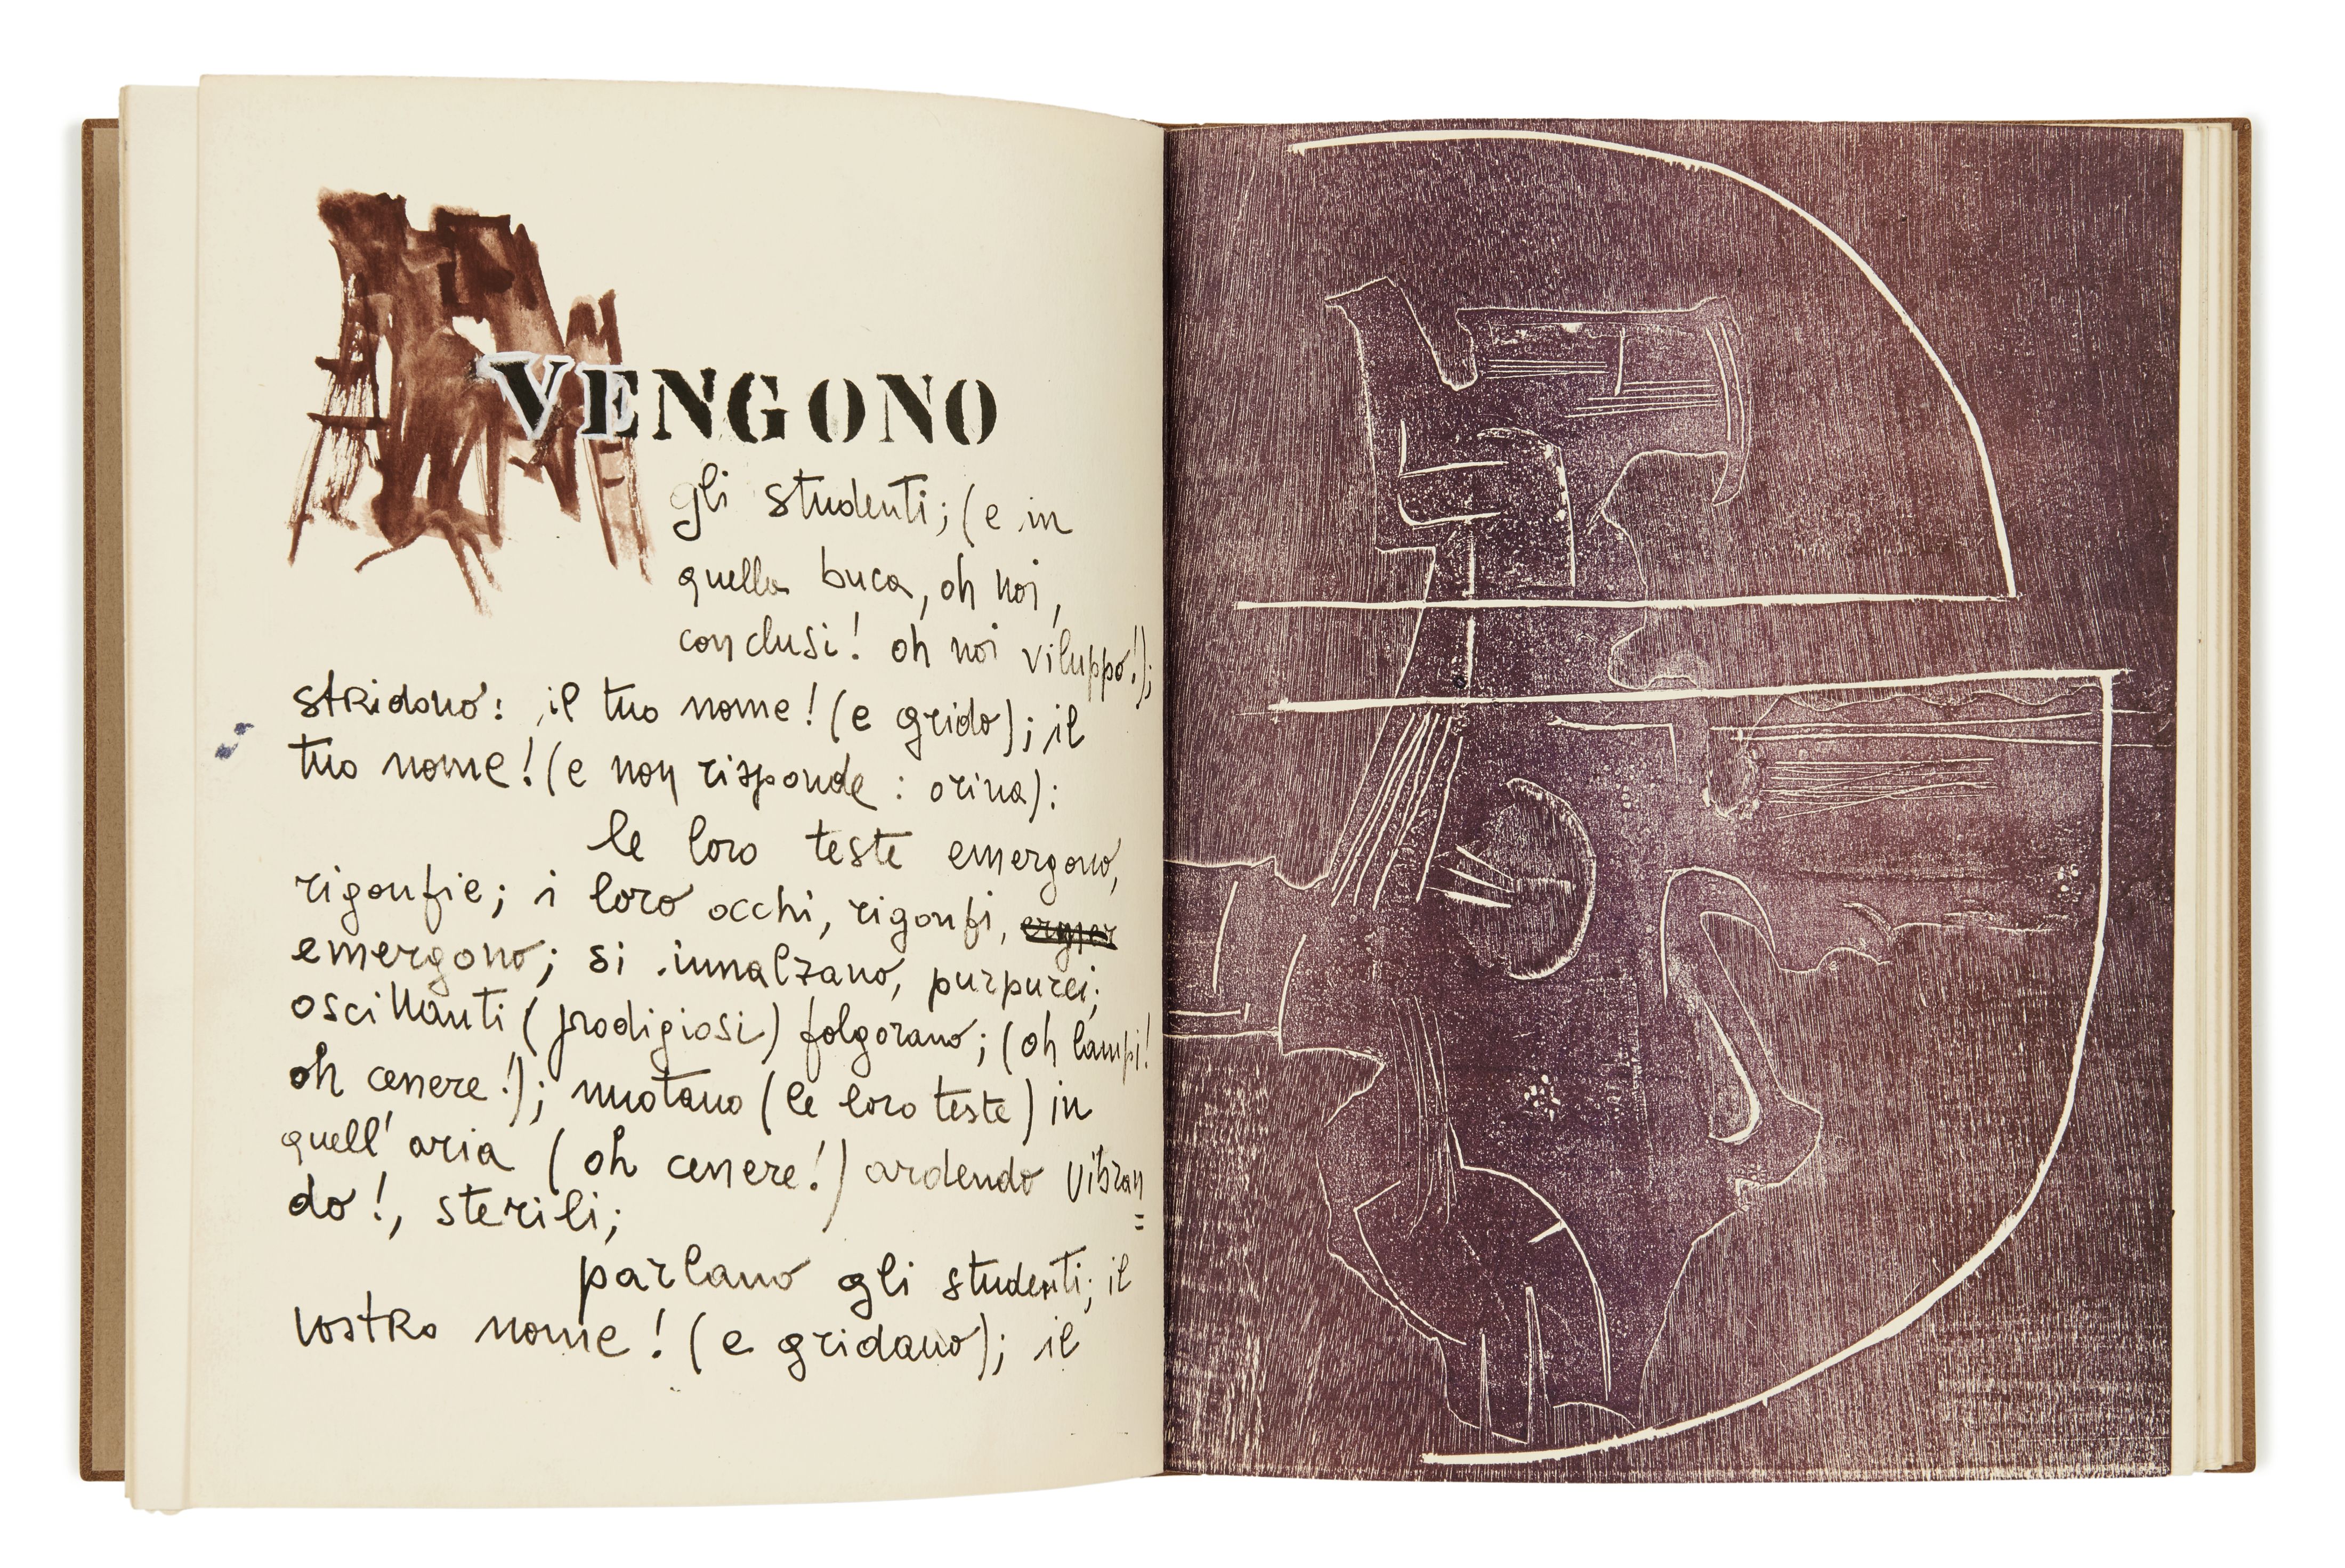 VENGONO
gli studenti; (e in
quella buca, oh noi,
conclusi! oh noi viluppo!);
stridono: il tuo nome! (e grido); il
tuo nome! (e non risponde: orina):
le loro teste emergono,
rigonfie; i loro occhi, rigonfi,
emergono; si innalzano, purpurei;
oscillanti (prodigiosi) folgorano; (oh lampi!
oh cenere!); nuotano (le loro teste) in
quell' aria (oh cenere!) ardendo vibran
do!, sterili;
parlano gli studenti; il
vostro nome! (e gridano); il